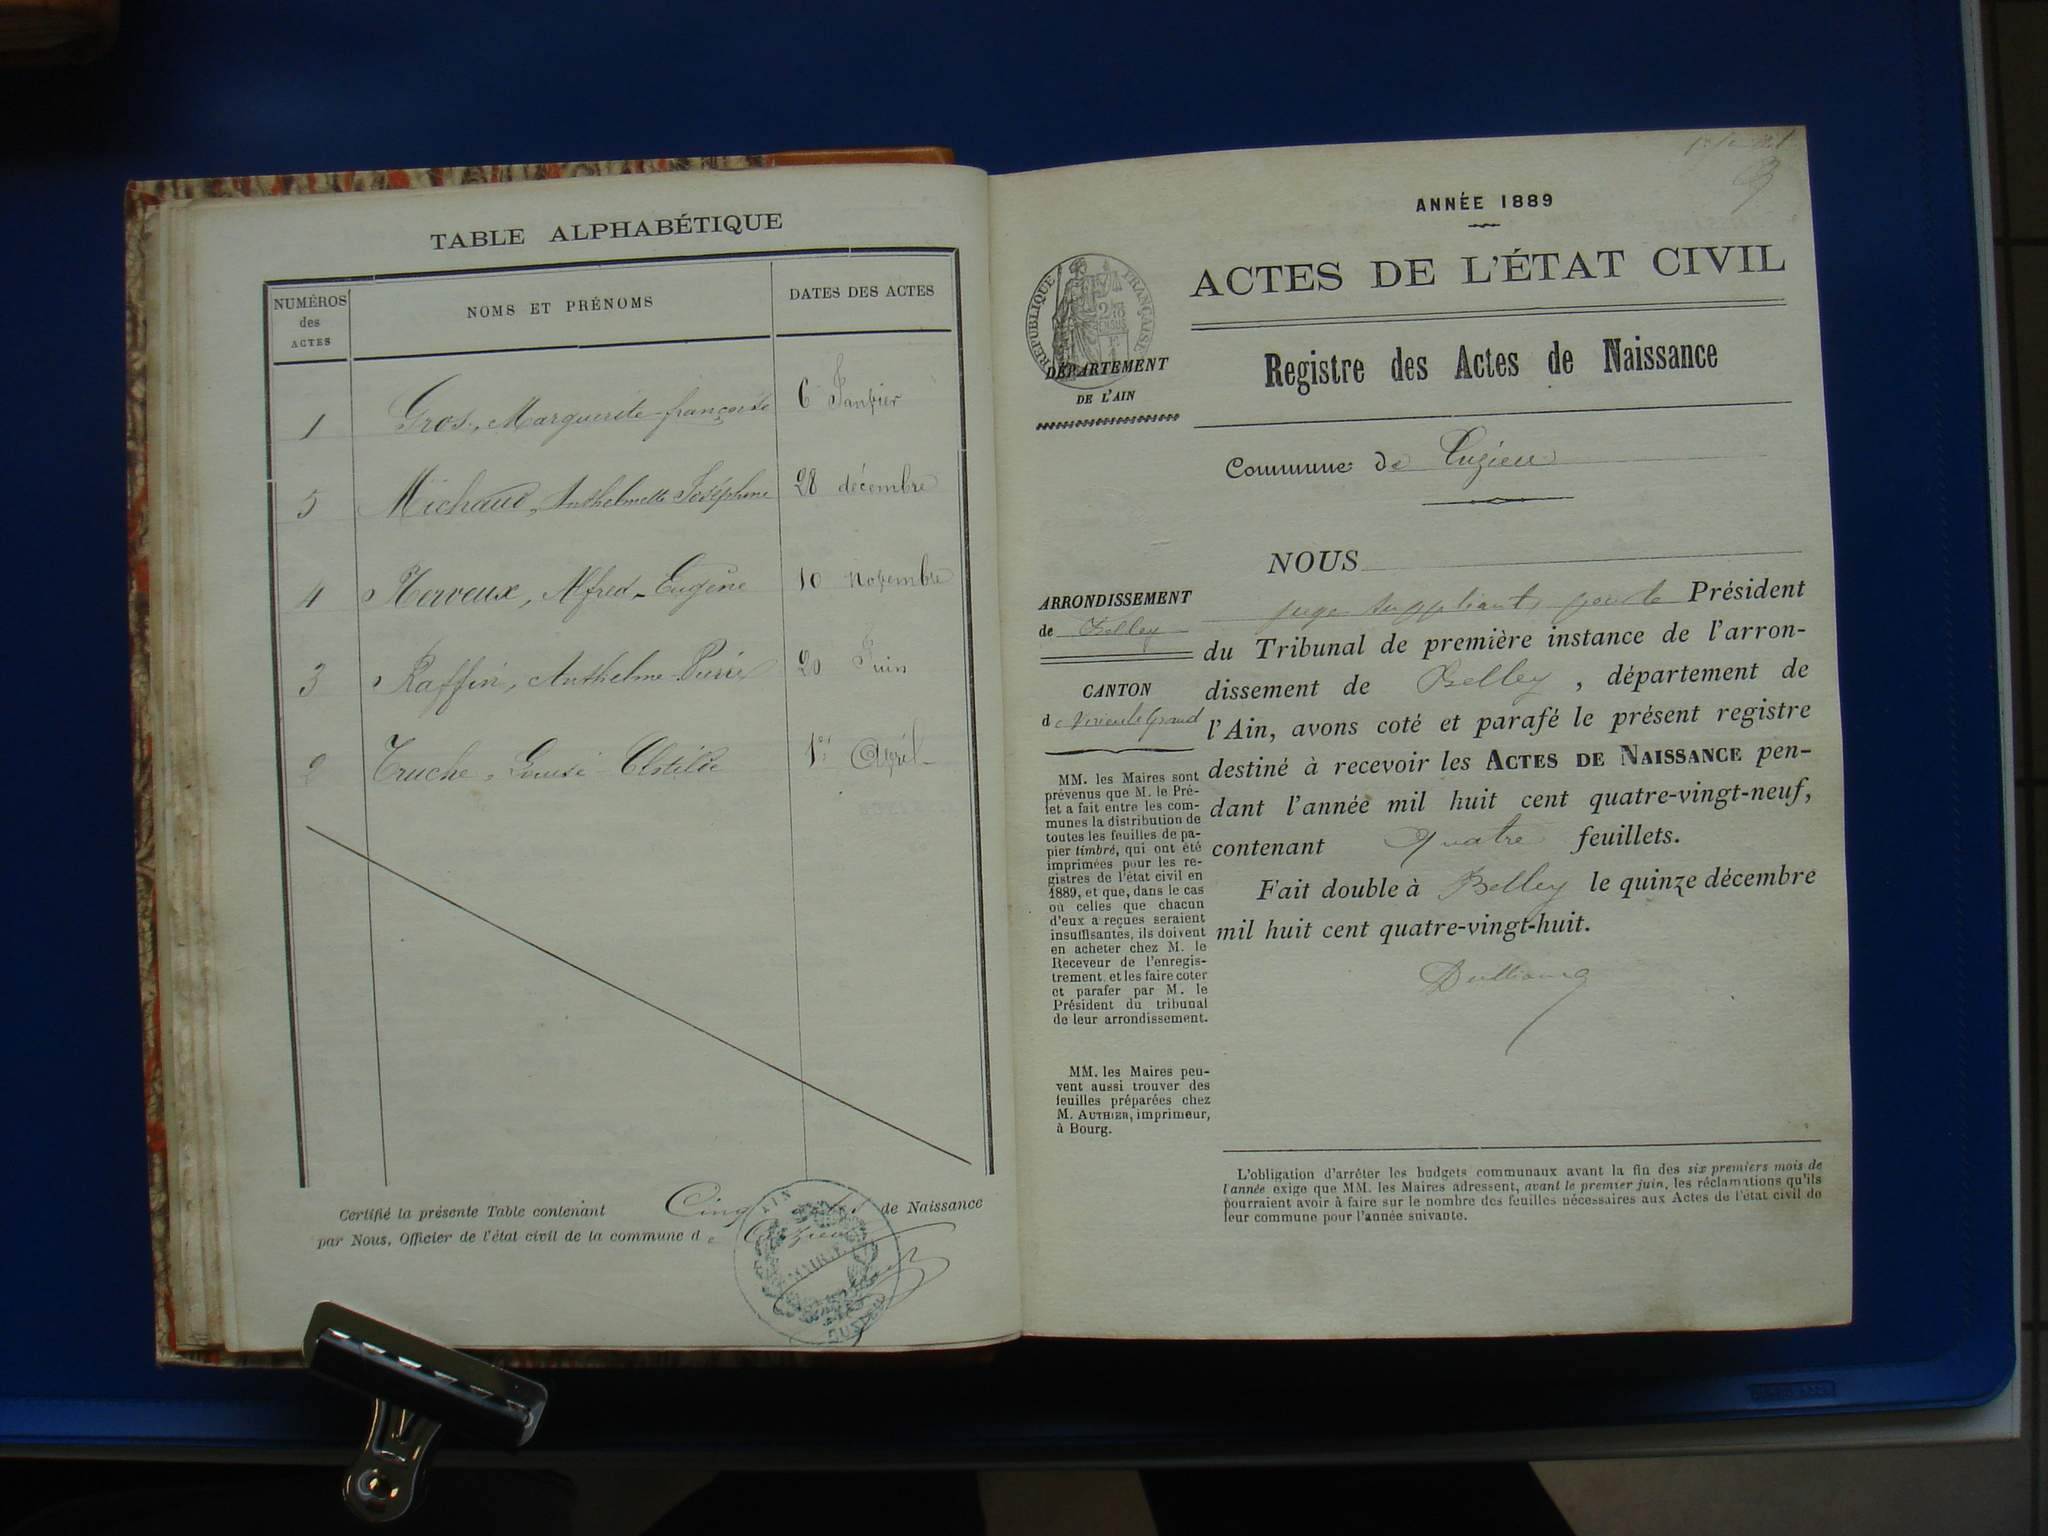 TABLE ALPHABÉTIQUE
NUMÉROS des ACTES
NOMS ET PRÉNOMS
DATES DES ACTES
1 Gros, Marguerite-françoise 6 Janvier
5 Michaud, Anthelmette Joséphine 28 décembre
4 Nerveux, Alfred-Eugène 10 novembre
3 Raffin, Anthelme Pierre 20 Juin
2 Truche, Louise Clotilde 1er Avril
Certifié la présente Table contenant Cinq de Naissance
par Nous, Officier de l'état civil de la commune de Cuzieu
AIN
MAIRIE
ANNÉE 1889
ACTES DE L'ÉTAT CIVIL
RÉPUBLIQUE FRANÇAISE
DÉPARTEMENT
DE L'AIN
Registre des Actes de Naissance
Commune de Cuzieu
ARRONDISSEMENT
de Belley
CANTON
de Virieu le Grand
MM. les Maires sont
prévenus que M. le Pré-
fet a fait entre les com-
munes la distribution de
toutes les feuilles de pa-
pier timbré, qui ont été
imprimées pour les re-
gistres de l'état civil en
1889, et que, dans le cas
où celles que chacun
d'eux a reçues seraient
insuffisantes, ils doivent
en acheter chez M. le
Receveur de l'enregis-
trement, et les faire coter
et parafer par M. le
Président du tribunal
de leur arrondissement.
MM. les Maires peu-
vent aussi trouver des
feuilles préparées chez
M. AUTHIER, imprimeur,
à Bourg.
NOUS
juge suppléant, pour le Président
du Tribunal de première instance de l'arron-
dissement de Belley, département de
l'Ain, avons coté et parafé le présent registre
destiné à recevoir les ACTES DE NAISSANCE pen-
dant l'année mil huit cent quatre-vingt-neuf,
contenant quatre feuillets.
Fait double à Belley le quinze décembre
mil huit cent quatre-vingt-huit.
L'obligation d'arrêter les budgets communaux avant la fin des six premiers mois de
l'année exige que MM. les Maires adressent, avant le premier juin, les réclamations qu'ils
pourraient avoir à faire sur le nombre des feuilles nécessaires aux Actes de l'état civil de
leur commune pour l'année suivante.